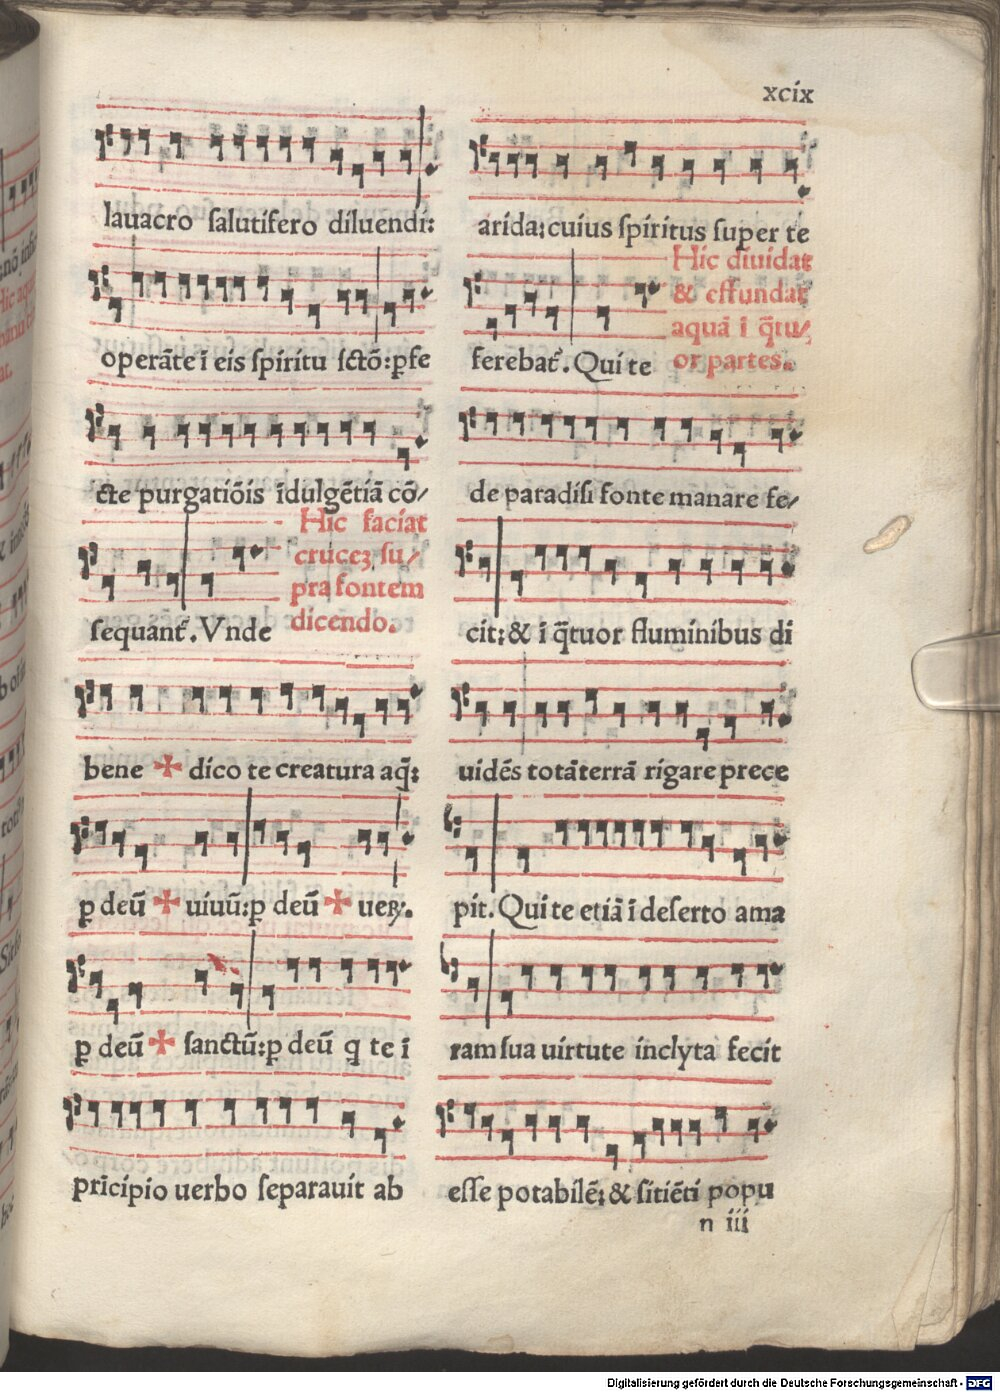 xcix
lauacro salutifero diluendi:
operāte ī eis spiritu sctō: ꝑfe
cte purgatiōis īdulgētiā cō/
Hic faciat
cruceꝫ su/
pra fontem
dicendo.
sequant᷑. Vnde
bene ✠ dico te creatura aq̄:
p deū ✠ uiuū: p deū ✠ ueꝝ.
p deū ✠ sanctū: p deū q te ī
pricipio uerbo separauit ab
arida: cuius spiritus super te
Hic diuidat
& effundat
aquā ī q̄tu/
or partes.
ferebat᷑. Qui te
de paradisi fonte manare fe/
cit: & ī q̄tuor fluminibus di
uidēs totā terrā rigare prece
pit. Qui te etiā ī deserto ama
ram sua uirtute inclyta fecit
esse potabilē: & sitiēti popu
n iii
Digitalisierung gefördert durch die Deutsche Forschungsgemeinschaft - DFG